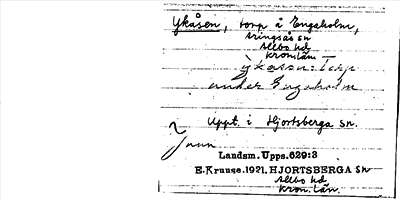 Ykåsen, torp i Engaholm,
Aringsås sn
Allbo hd
Kron. län
ỳkåsən: torp
under Engaholm
Uppt. i Hjortsberga sn.
Landsm. Upps. 629:3
E. Kruuse. 1921, HJORTSBERGA sn
Allbo hd
Kron. län.